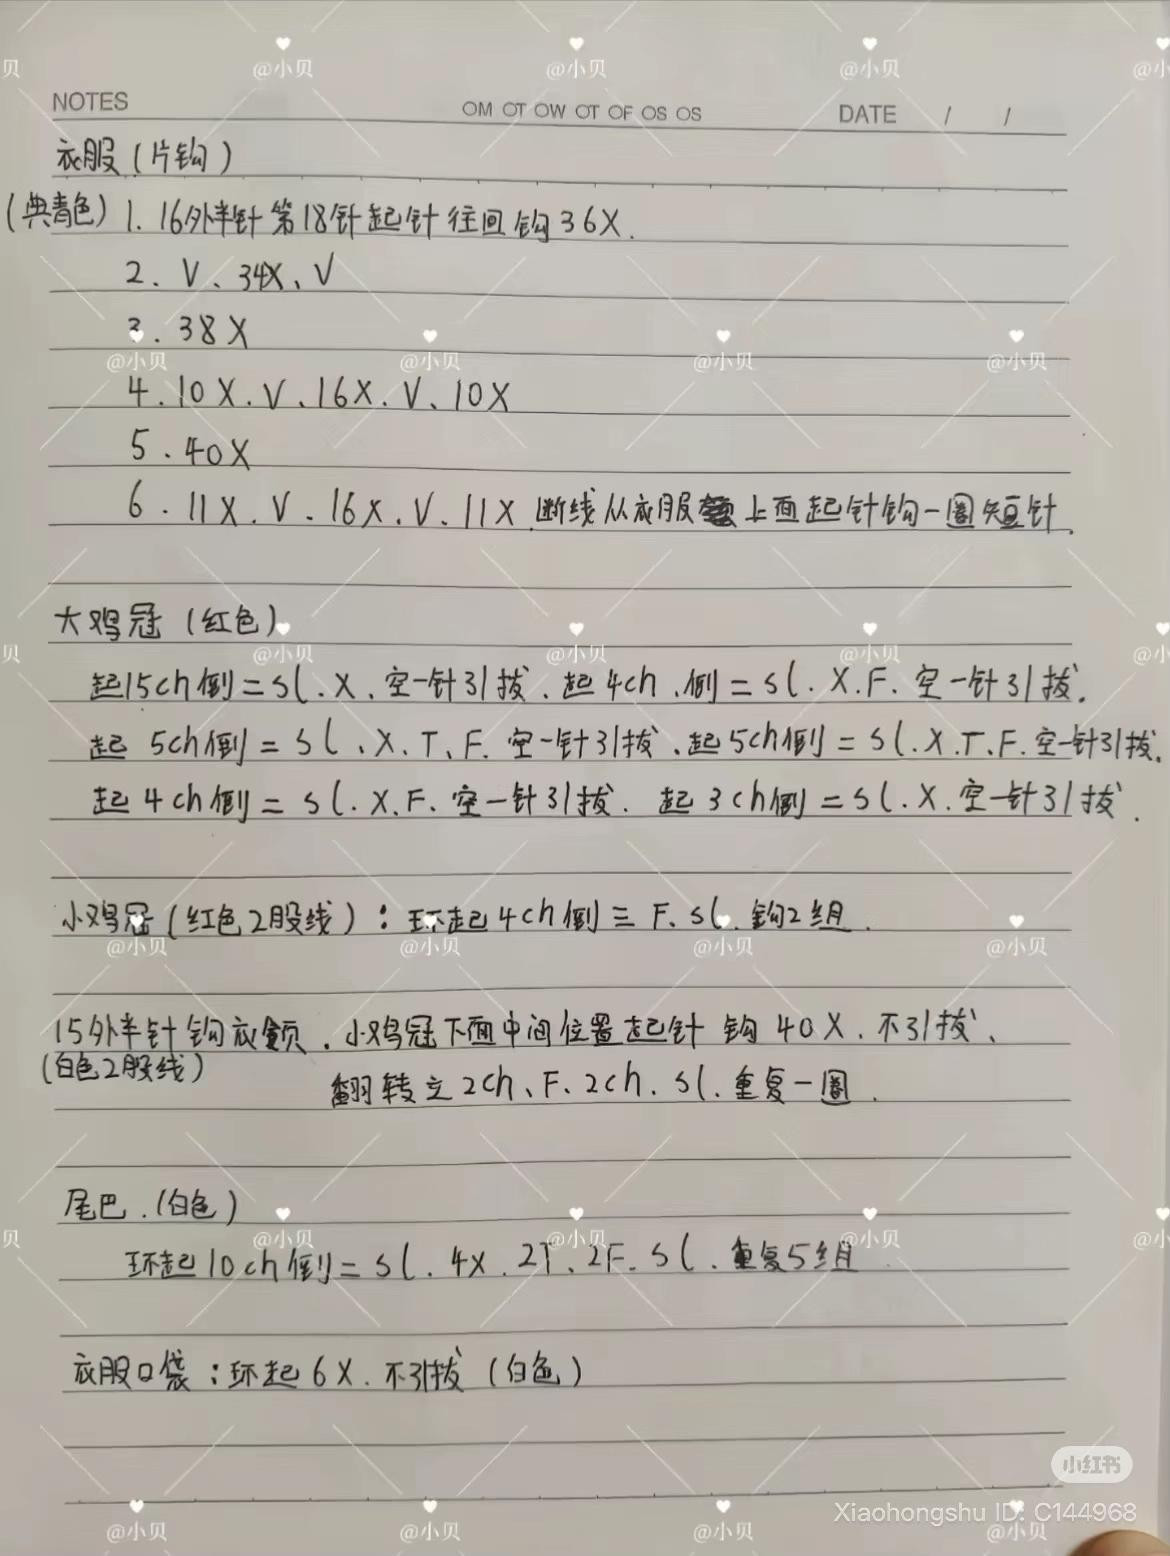 NOTES OM OT OW OT OF OS OS DATE / /
衣服(片钩)
(典青色) 1. 16外半针第18针起针往回钩36X.
2. V、34X、V
3. 38X
4. 10X. V、16X. V、10X
5. 40X
6. 11X. V. 16X. V. 11X 断线从衣服上面起针钩一圈短针.
大鸡冠(红色)
起15ch倒=sl. X. 空一针引拔. 起4ch. 倒=sl. X. F. 空一针引拔.
起 5ch倒=sl、X. T、F. 空一针引拔、起5ch倒=sl. X. T. F. 空一针引拔.
起4ch倒=sl. X. F. 空一针引拔. 起3ch倒=sl. X. 空一针引拔.
小鸡冠(红色2股线): 环起4ch倒三 F. sl. 钩2组.
15外半针钩衣领. 小鸡冠下面中间位置起针 钩40X. 不引拔、
(白色2股线) 翻转立2ch、F、2ch. sl. 重复一圈.
尾巴. (白色)
环起10ch倒=sl. 4X. 2T、2F. sl. 重复5组
衣服口袋: 环起6X. 不引拔(白色)
小红书
Xiaohongshu ID: C144968
@小贝